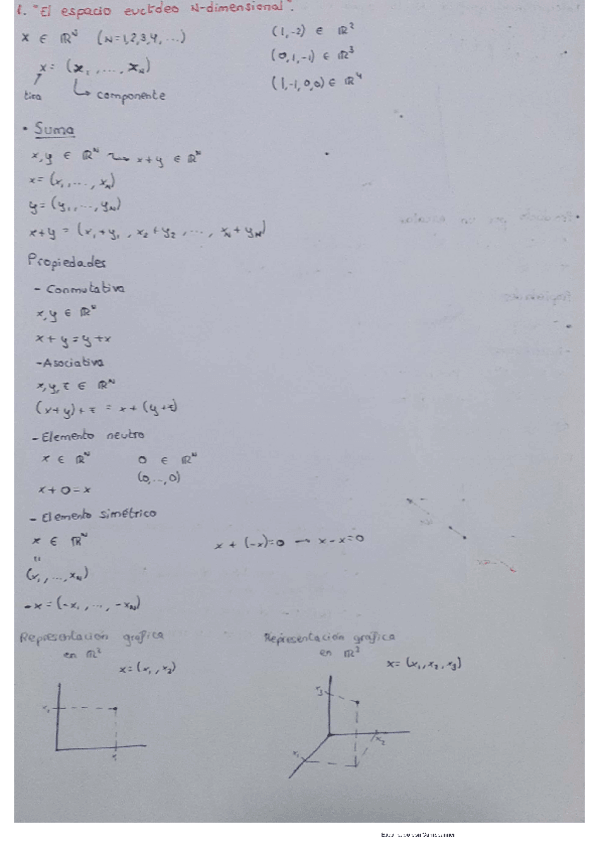 1. "El espacio euclídeo N-dimensional".
x ∈ ℝᴺ (N=1,2,3,4,...)
(1,-2) ∈ ℝ²
x = (x₁, ..., x_N)
(0,1,-1) ∈ ℝ³
componente
(1,-1,0,0) ∈ ℝ⁴
• Suma
x,y ∈ ℝᴺ ⤳ x+y ∈ ℝᴺ
x = (x₁, ..., x_N)
y = (y₁, ..., y_N)
x+y = (x₁+y₁, x₂+y₂, ..., x_N+y_N)
Propiedades
- Conmutativa
x,y ∈ ℝᴺ
x+y = y+x
- Asociativa
x,y,z ∈ ℝᴺ
(x+y)+z = x+(y+z)
- Elemento neutro
x ∈ ℝᴺ 0 ∈ ℝᴺ
(0,...,0)
x+0=x
- Elemento simétrico
x ∈ ℝᴺ x+(-x)=0 → x-x=0
"
(x₁, ..., x_N)
-x = (-x₁, ..., -x_N)
Representación gráfica
en ℝ²
x=(x₁,x₂)
Representación gráfica
en
x=(x₁,x₂,x₃)
x₂
x₁